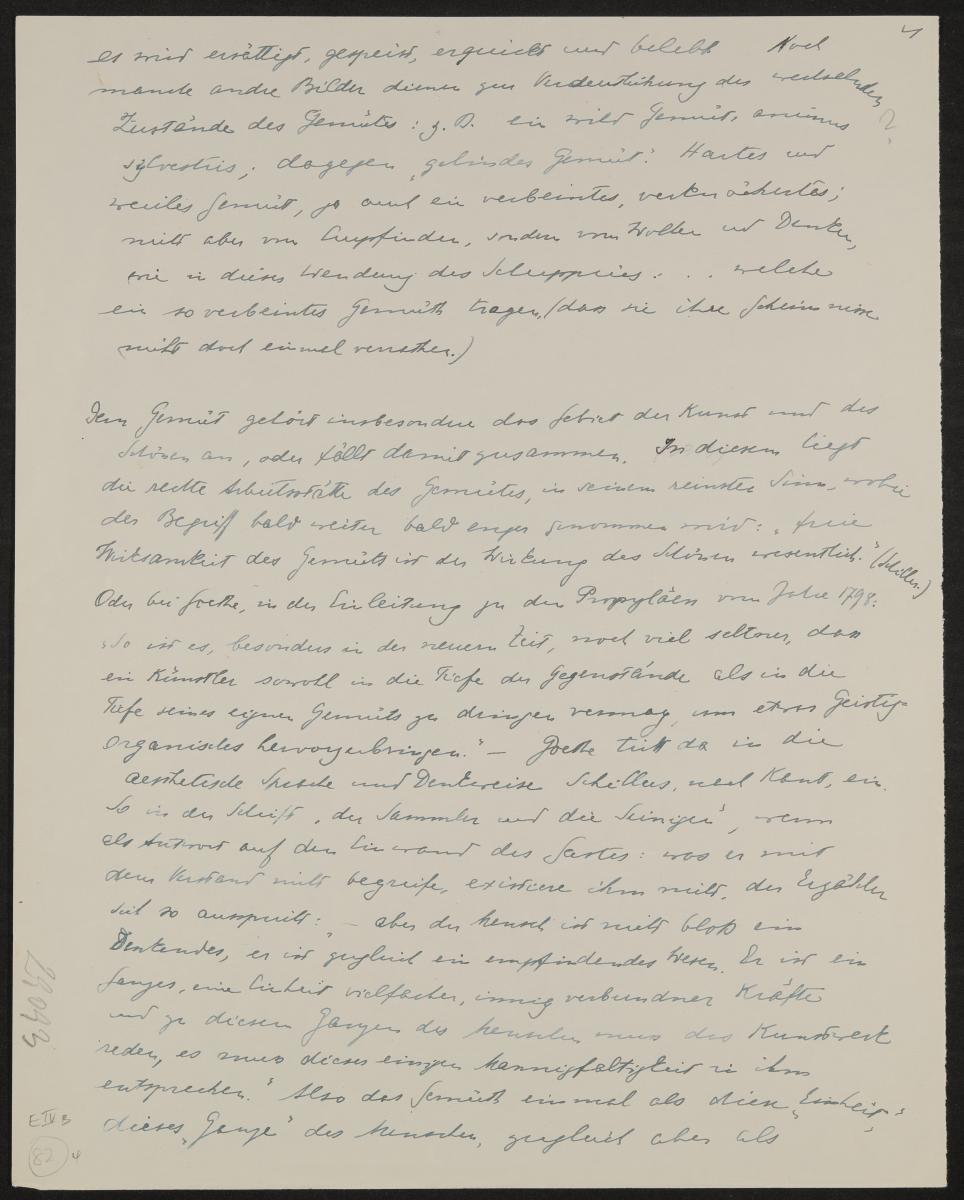 4
es wird ersättigt, gespeist, erquickt und belebt Noch
manche andre Bilder dienen zur Verdeutlichung des wechselnden
Zustände des Gemütes: z. B. ein wild Gemüt, animus
sylvestris; dagegen „gelindes Gemüt". Hartes und
weiches Gemüt, ja auch ein verbeintes, verknöchertes;
nicht aber vom Empfinden, sondern vom Wollen und Denken,
wie in dieser Wendung des Schuppius: . . welche
ein so verbeintes Gemüth tragen, (dass sie ihre Geheimnisse
nicht doch einmal verrathen.)
Dem Gemüt gehört insbesondere das Gebiet der Kunst und des
Schönen an, oder fällt damit zusammen. In diesem liegt
die rechte Arbeitsstätte des Gemütes, in seinem reinsten Sinn, wobei
der Begriff bald weiter bald enger genommen wird: „freie
Wirksamkeit des Gemüts ist der Wirkung des Schönen wesentlich." (Schiller.)
Oder bei Goethe, in der Einleitung zu den Propyläen vom Jahre 1798:
„So ist es, besonders in der neuern Zeit, noch viel seltner, dass
ein Künstler sowohl in die Tiefe der Gegenstände als in die
Tiefe seines eignen Gemüts zu dringen vermag, um etwas Geistig-
organisches hervorzubringen." – Goethe tritt da in die
aesthetische Sprache und Denkweise Schillers, nach Kant, ein.
So in der Schrift „der Sammler und die Seinigen", wenn
als Antwort auf den Einwand des Gastes: was er mit
dem Verstand nicht begreife, existiere ihm nicht, der Erzähler
sich so ausspricht: „– aber der Mensch ist nicht bloß ein
Denkendes, er ist zugleich ein empfindendes Wesen. Er ist ein
Ganzes, eine Einheit vielfacher, innig verbundner Kräfte
und zu diesem Ganzen des Menschen muss das Kunstwerk
reden, es muss dieser einigen Mannigfaltigkeit in ihm
entsprechen." Also das Gemüth einmal als diese „Einheit",
dieses „Ganze" des Menschen, zugleich aber als
E IV B
82 4